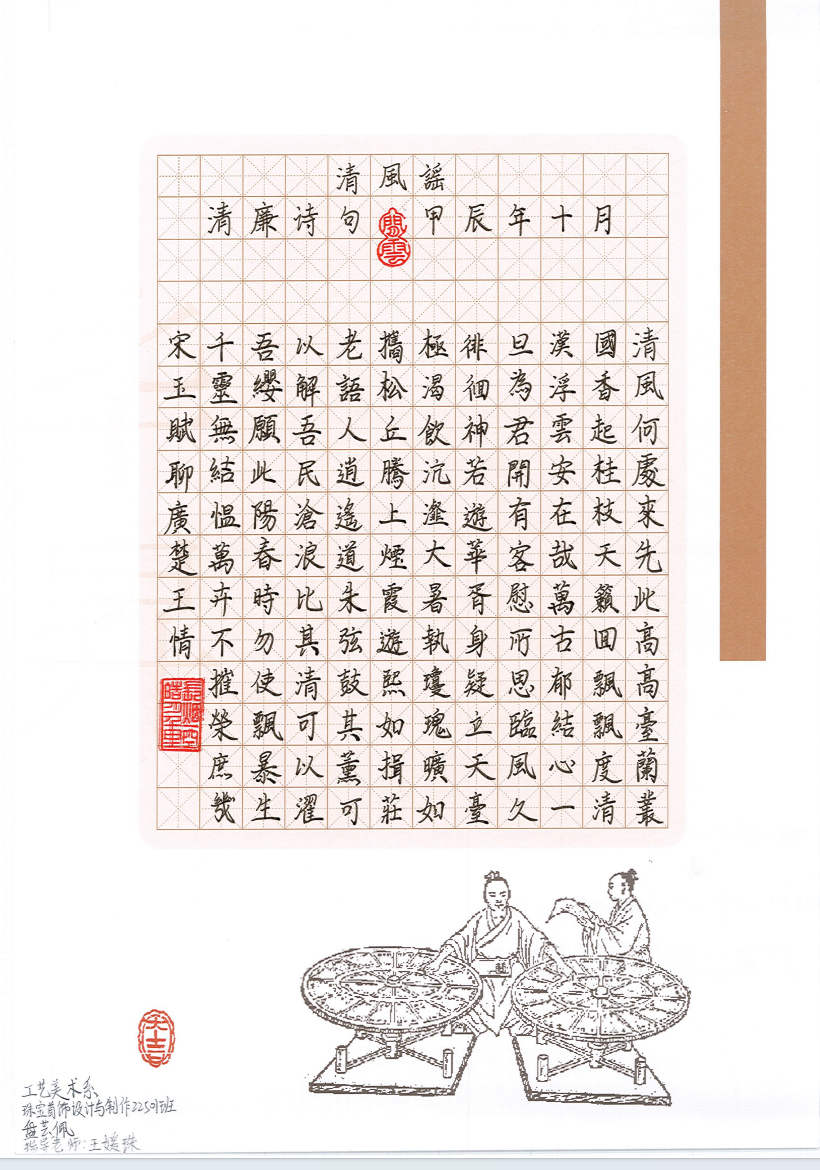 清風謠
清廉诗句 甲辰年十月
清風何處來先此高高臺蘭叢
國香起桂枝天籟回飄飄度清
漢浮雲安在哉萬古郁結心一
旦為君開有客慰所思臨風久
徘徊神若遊華胥身疑立天臺
極渴飲沆瀣大暑執瓊瑰曠如
攜松丘騰上煙霞遊熙如揖莊
老語人逍遙道朱弦鼓其薰可
以解吾民滄浪比其清可以濯
吾纓願此陽春時勿使飄暴生
千靈無結愠萬卉不摧榮庶幾
宋玉賦聊廣楚王情
大吉
工艺美术系
珠宝首饰设计与制作22501班
盘芸佩
指导老师:王媛珠